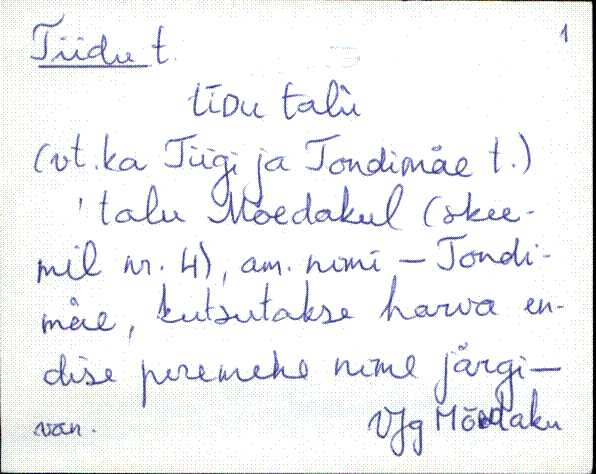 Tiidu t. 1
tīDu talù
(vt. ka Tiigi ja Tondimäe t.)
' talu Mõedakul (skee-
mil nr. 4), am. nimi – Tondi-
mäe, kutsutakse harva en-
dise peremehe nime järgi –
van. VJg Mõedaku